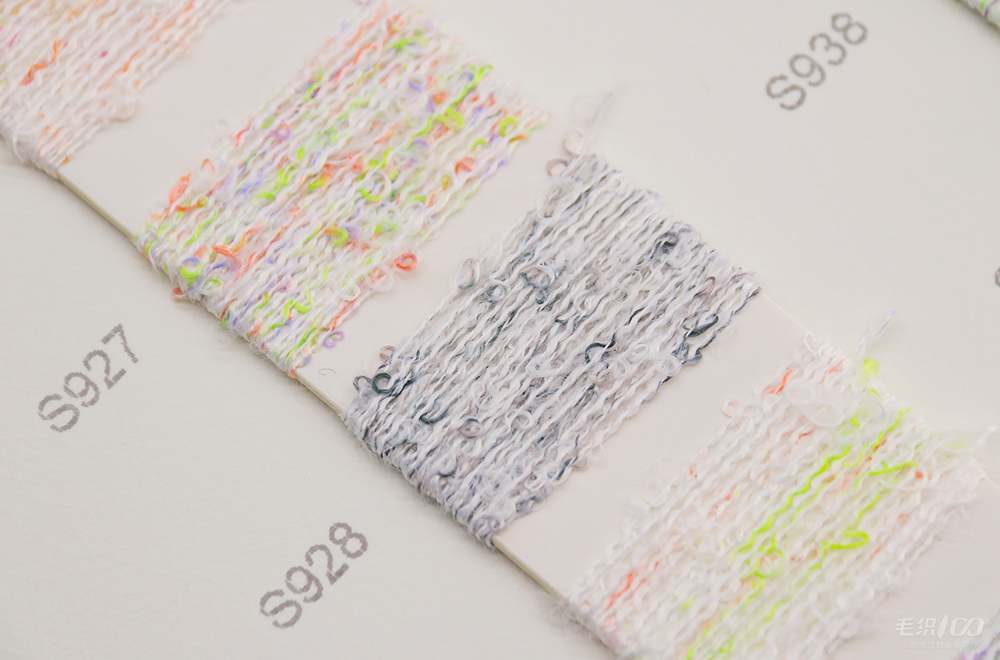 S938
S927
S928
毛织100